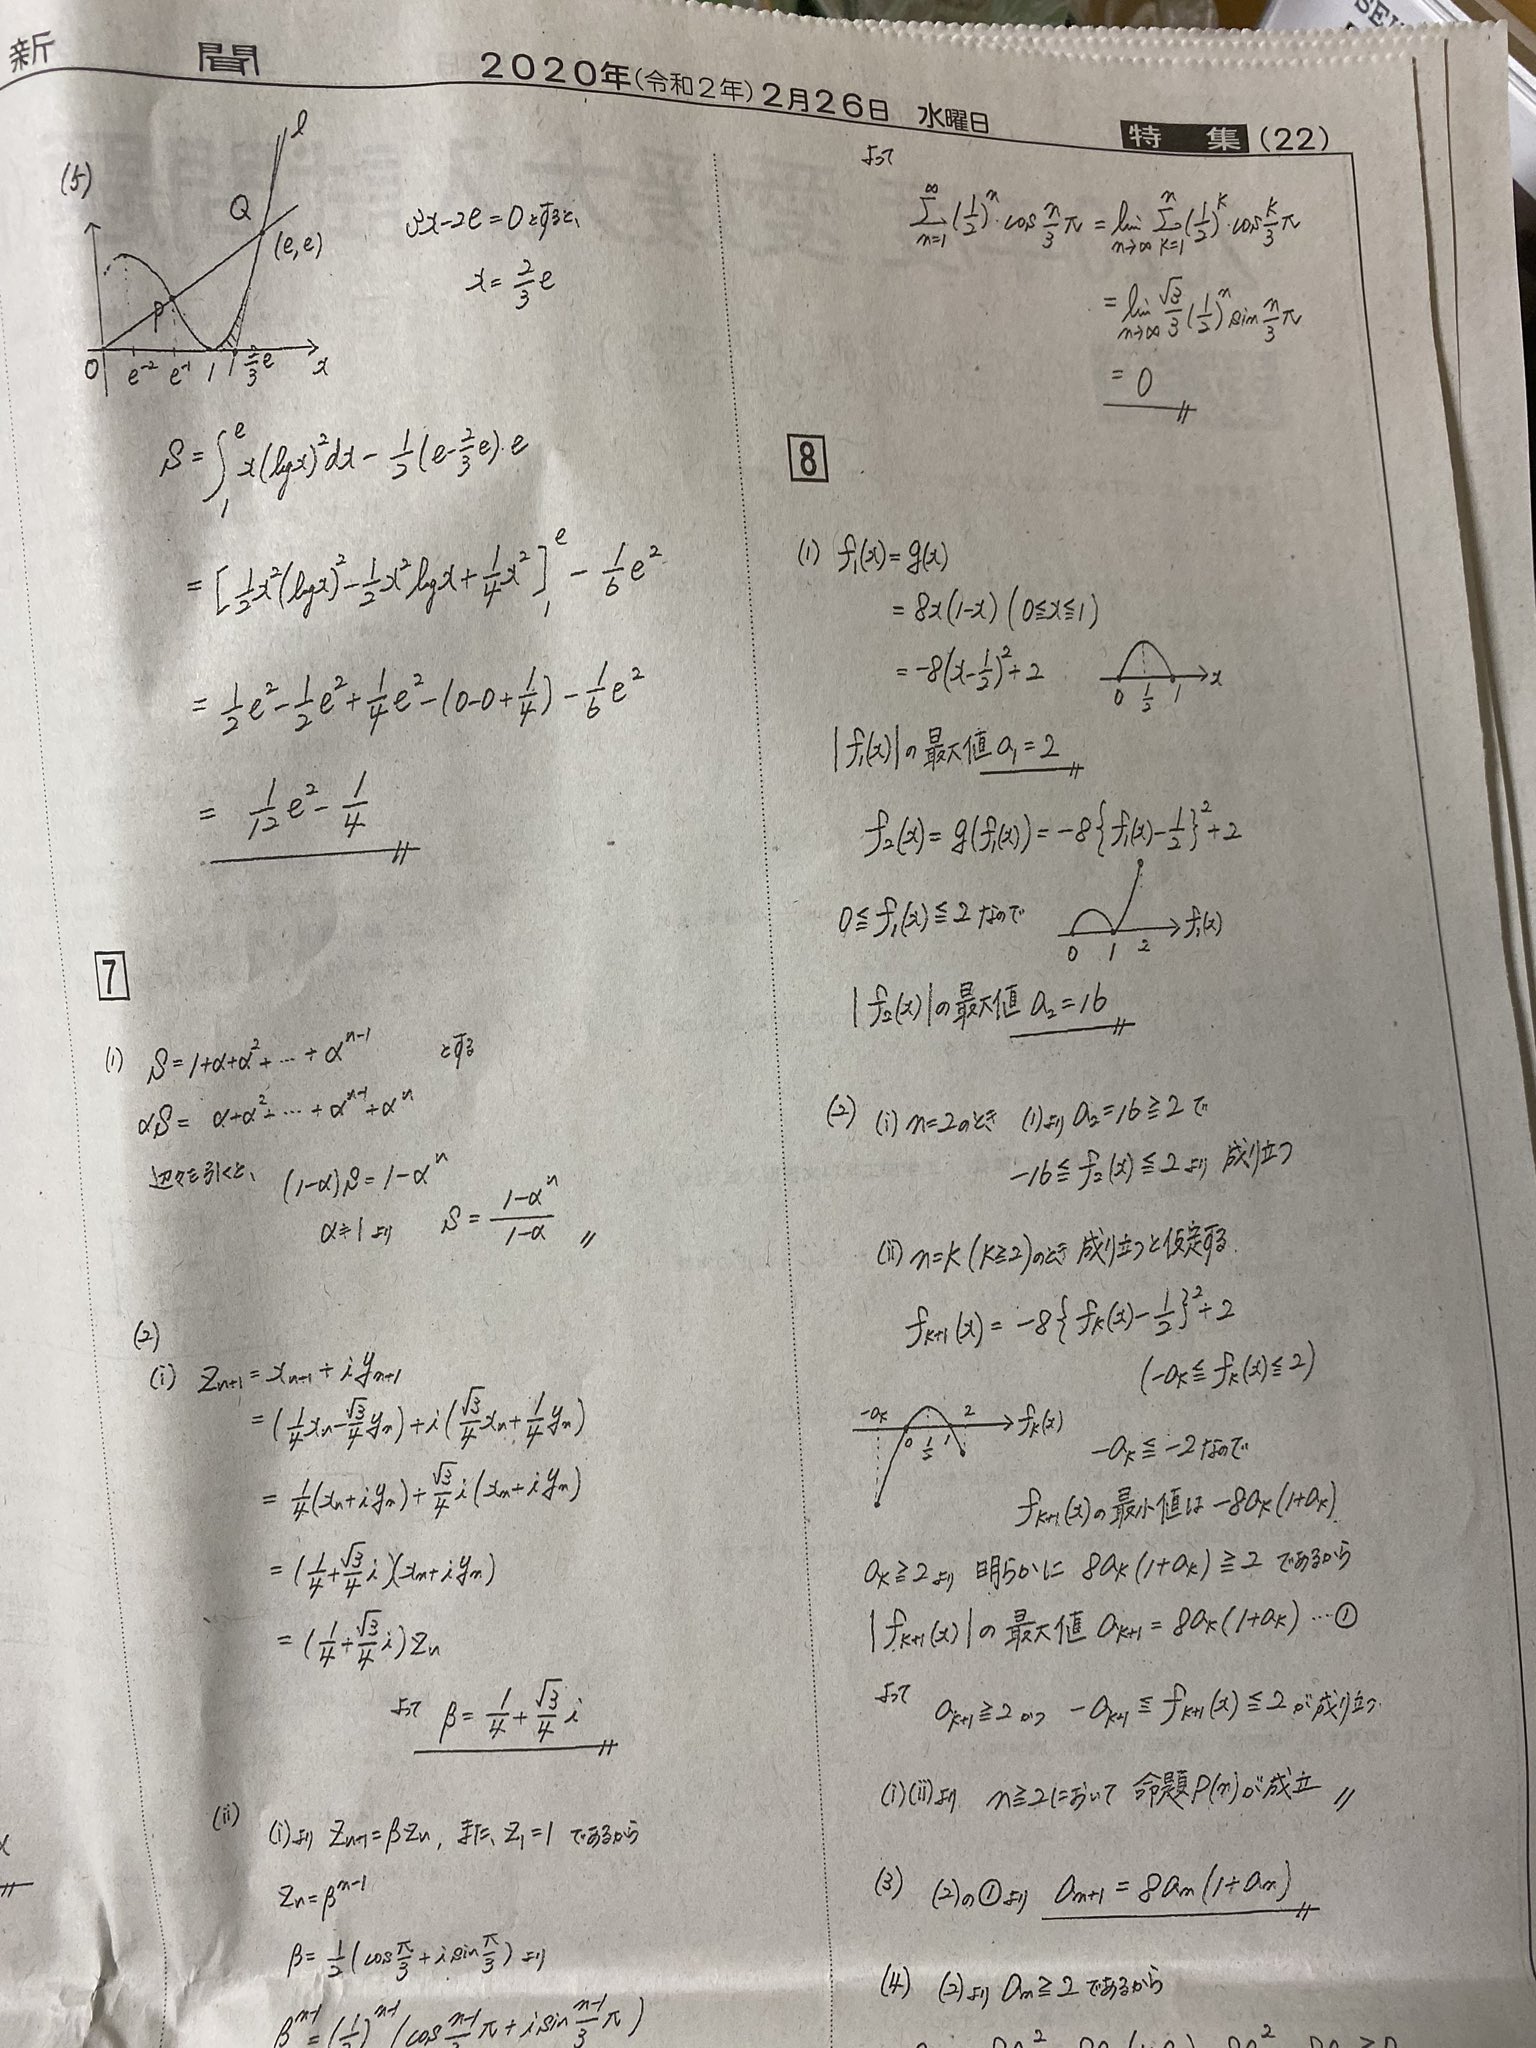 新聞 2020年(令和2年)2月26日 水曜日 特集(22)
(5)
l
Q
(e,e)
P
O e⁻² e⁻¹ 1 2/3e x
3x-2e=0とすると、
x=2/3 e
S=∫₁ᵉ x(logx)²dx-1/2(e-2/3e)·e
=[1/2x²(logx)²-1/2x²logx+1/4x²]₁ᵉ-1/6e²
=1/2e²-1/2e²+1/4e²-(0-0+1/4)-1/6e²
=1/12e²-1/4
7
(1) S=1+α+α²+…+αⁿ⁻¹ とする
αS= α+α²+…+αⁿ⁻¹+αⁿ
辺々を引くと、 (1-α)S=1-αⁿ
α≠1より S=(1-αⁿ)/(1-α)
(2)
(i) zₙ₊₁=xₙ₊₁+iyₙ₊₁
=(1/4xₙ-√3/4yₙ)+i(√3/4xₙ+1/4yₙ)
=1/4(xₙ+iyₙ)+√3/4i(xₙ+iyₙ)
=(1/4+√3/4i)(xₙ+iyₙ)
=(1/4+√3/4i)zₙ
よって β=1/4+√3/4i
(ii) (i)より zₙ₊₁=βzₙ, また、z₁=1 であるから
zₙ=βⁿ⁻¹
β=1/2(cosπ/3+isinπ/3)より
βⁿ⁻¹=(1/2)ⁿ⁻¹(cos(n-1)/3π+isin(n-1)/3π)
よって
∞Σn=1(1/2)ⁿ·cosn/3π=lim n→∞ nΣk=1(1/2)ᵏ·cosk/3π
=lim n→∞ √3/3(1/2)ⁿsinn/3π
=0
8
(1) f₁(x)=g(x)
=8x(1-x) (0≦x≦1)
=-8(x-1/2)²+2
0 1/2 1 x
|f₁(x)|の最大値a₁=2
f₂(x)=g(f₁(x))=-8{f₁(x)-1/2}²+2
0≦f₁(x)≦2なので
0 1 2 f₁(x)
|f₂(x)|の最大値 a₂=16
(2) (i) n=2のとき (1)より a₂=16≧2で
-16≦f₂(x)≦2より 成り立つ
(ii) n=k(k≧2)のとき 成り立つと仮定する.
fₖ₊₁(x)=-8{fₖ(x)-1/2}²+2
(-aₖ≦fₖ(x)≦2)
-aₖ 0 1/2 1 2 fₖ(x)
-aₖ≦-2なので
fₖ₊₁(x)の最小値は-8aₖ(1+aₖ)
aₖ≧2より 明らかに 8aₖ(1+aₖ)≧2 であるから
|fₖ₊₁(x)|の最大値 aₖ₊₁=8aₖ(1+aₖ)…①
よって aₖ₊₁≧2かつ -aₖ₊₁≦fₖ₊₁(x)≦2が成り立つ.
(i)(ii)より n≧2において 命題P(n)が成立
(3) (2)の①より aₙ₊₁=8aₙ(1+aₙ)
(4) (2)より aₙ≧2であるから